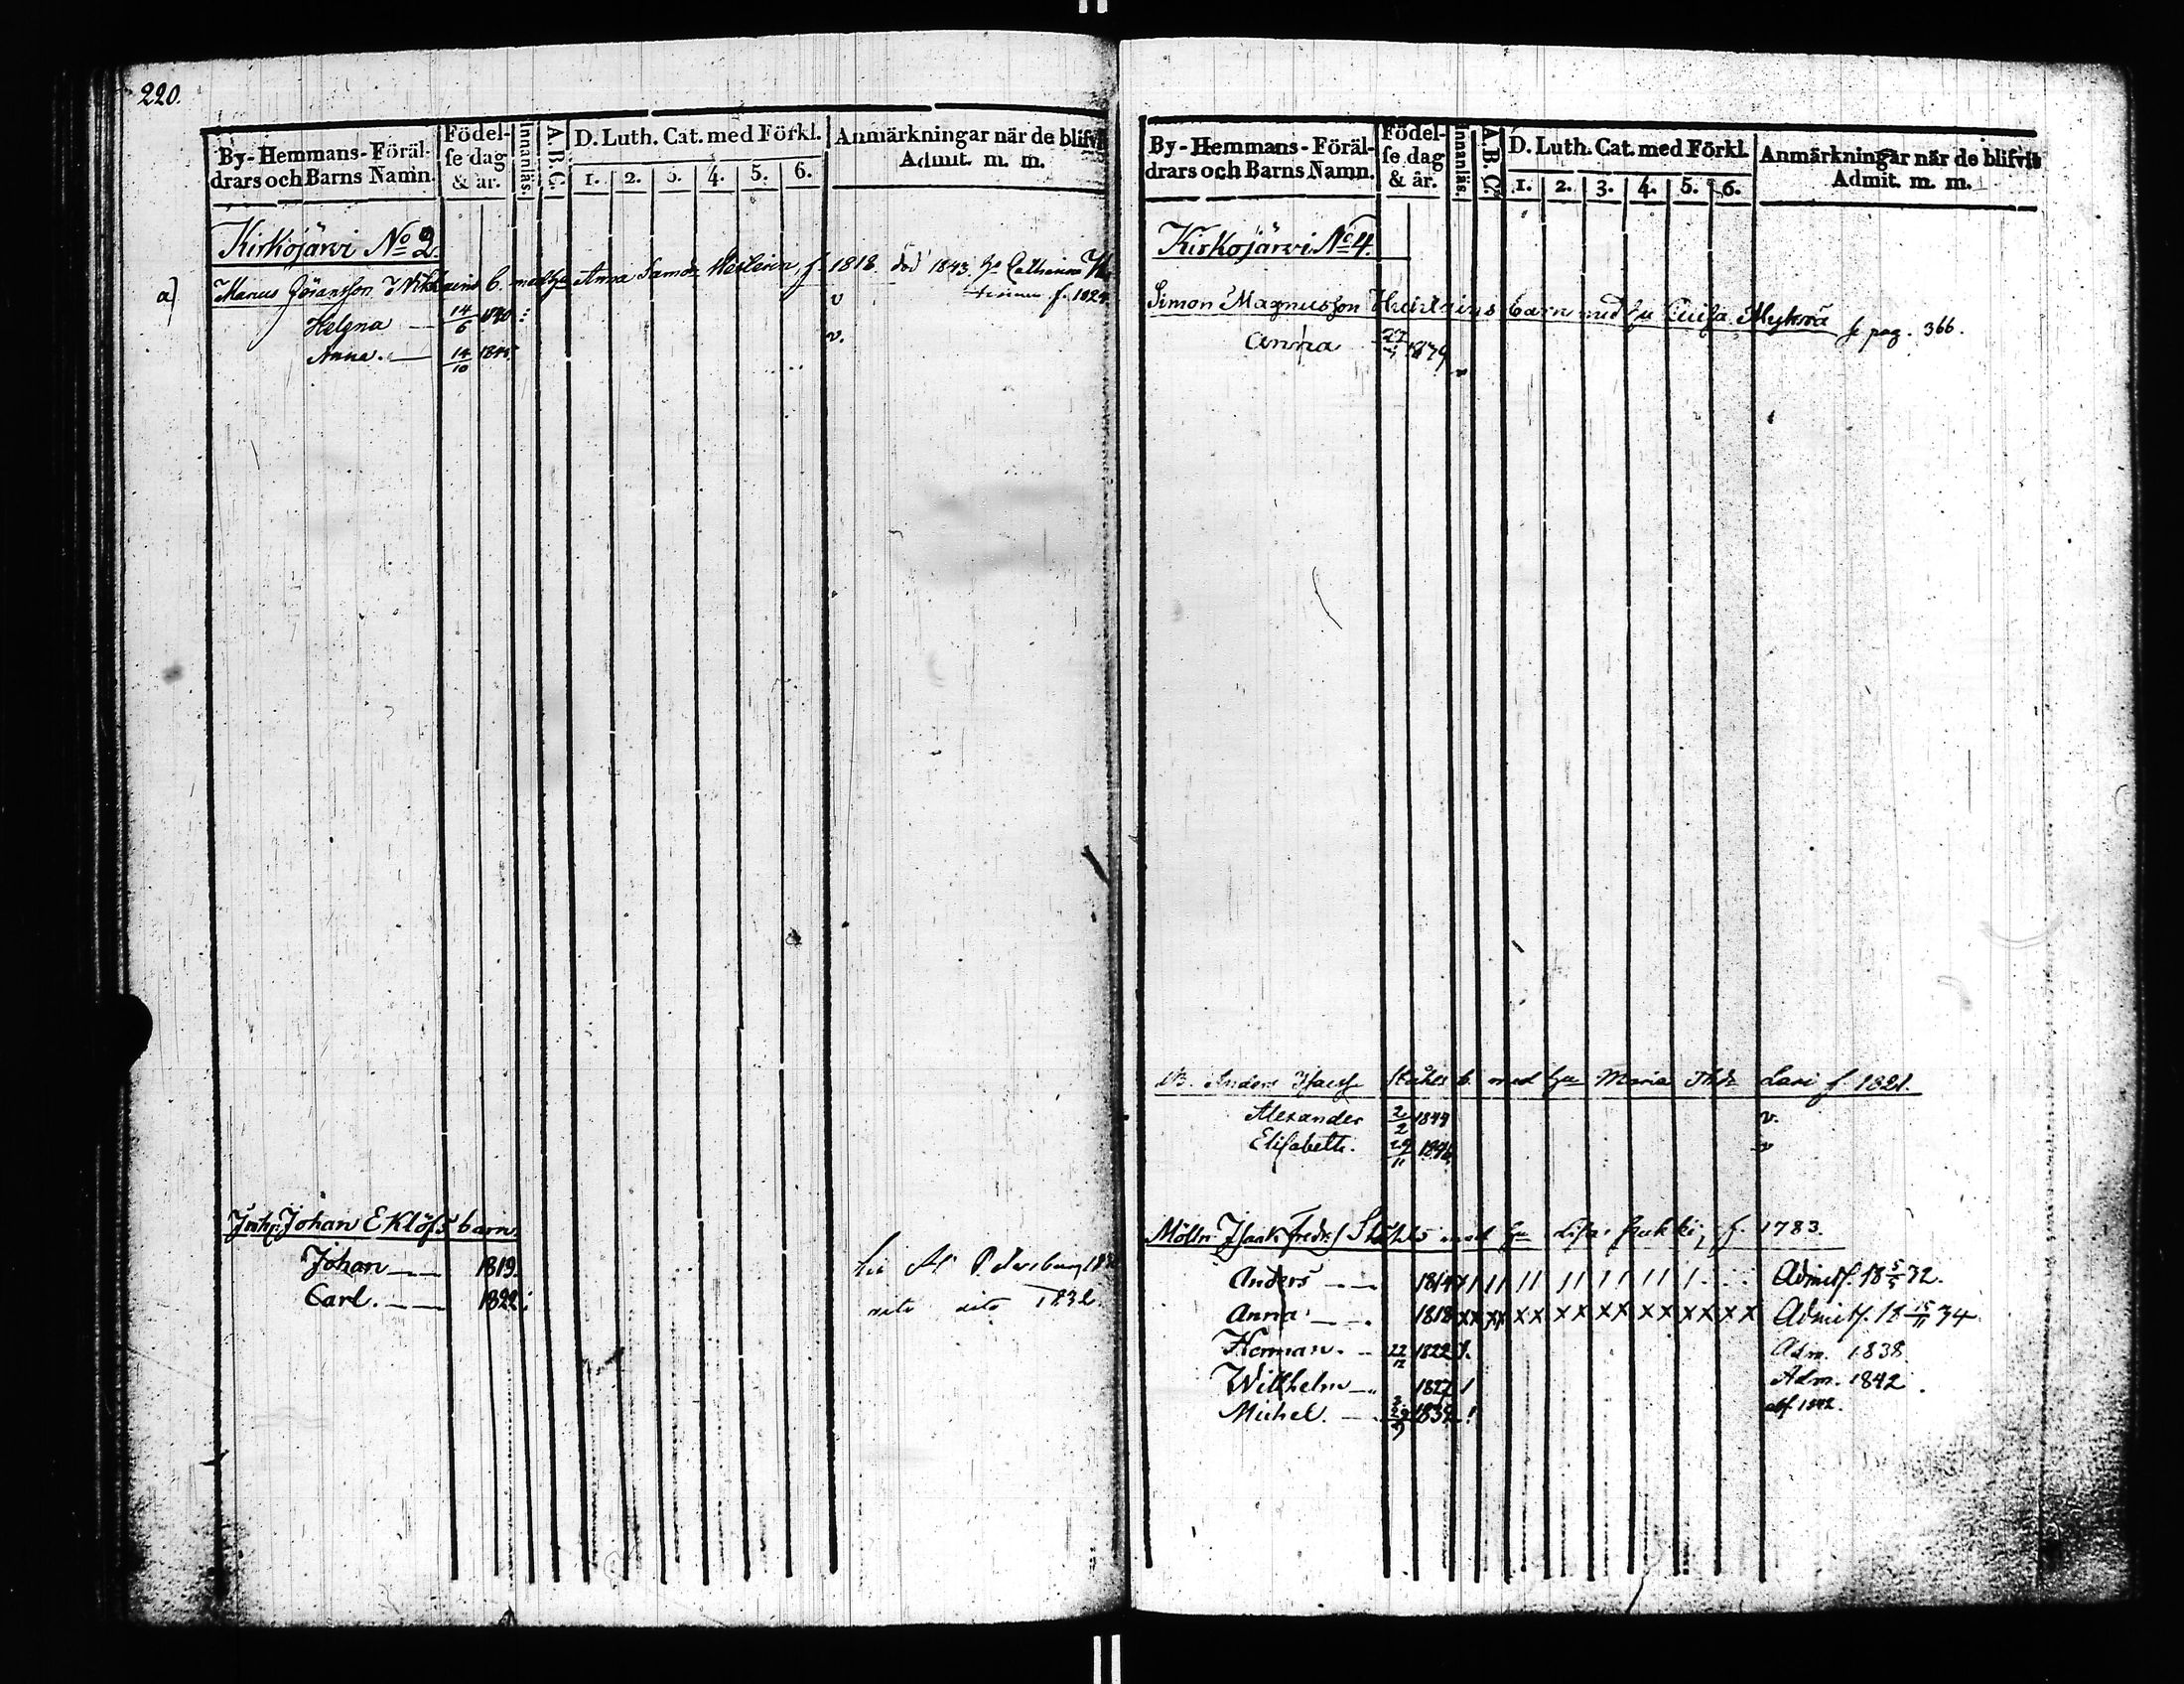 220.
By-Hemmans-Föräl-
drars och Barns Namn.
Födel-
se dag
& år.
Innanläs.
A.B.C.
D. Luth. Cat. med Förkl.
1. 2. 3. 4. 5. 6.
Anmärkningar när de blifvit
Admit. m. m.
Kirkojärvi No 2.
a) Marcus Göransson b. med hu Anna Samdr f. 1818. död 1843. hu Catharina
f. 1824
Helena 14/6 1840 v
Anna. 14/10 1845 v.
Johan Eklöfs barn.
Johan 1819. St Petersburg
Carl. 1822. dito dito 1832.
By-Hemmans-Föräl-
drars och Barns Namn.
Födel-
se dag
& år.
Innanläs.
A.B.C.
D. Luth. Cat. med Förkl.
1. 2. 3. 4. 5. 6.
Anmärkningar när de blifvit
Admit. m. m.
Kirkojärvi No 4.
Simon Magnusson barn med hu se pag. 366.
Anna
Anders b. med hu Maria Lari f. 1821.
Alexander 2/2 1844 v.
Elisabeth. 29/11 1846 v
Mölln. Isaak Fredrs Ståhls med hu Lisa f. 1783.
Anders 1814 x / / / / / / / / / / / / / Admitt. 18 5/5 32.
Anna 1818 x x x x x x x x x x x x x x x x Admitt. 18 15/11 34
Herman. 22/12 1822 /. Adm. 1838
Wilhelm 1827 / Adm. 1842.
Michel. !